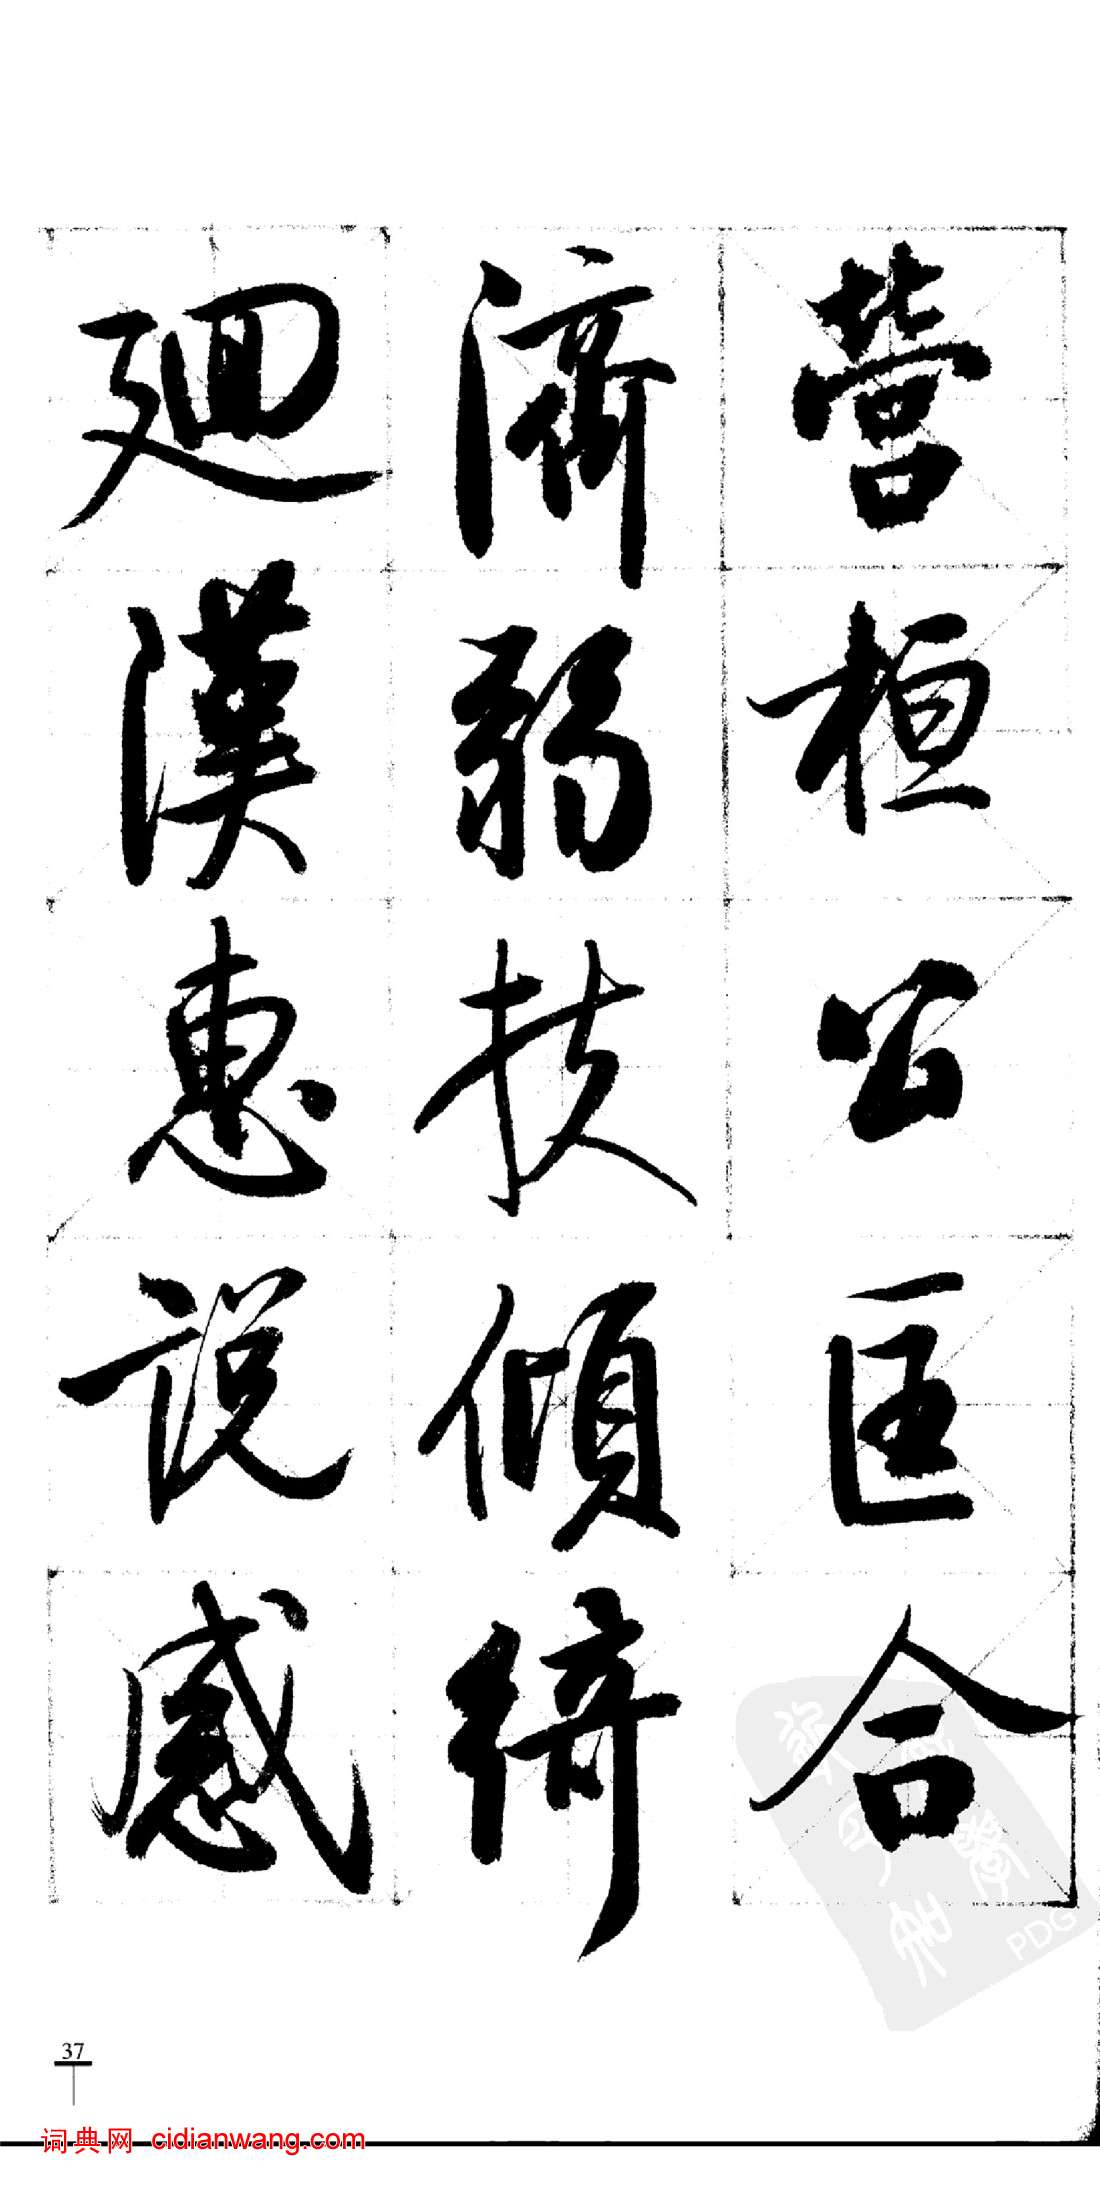 营桓公匡合
濟弱扶傾綺
迴漢惠説感
PDG
37
词典网 cidianwang.com